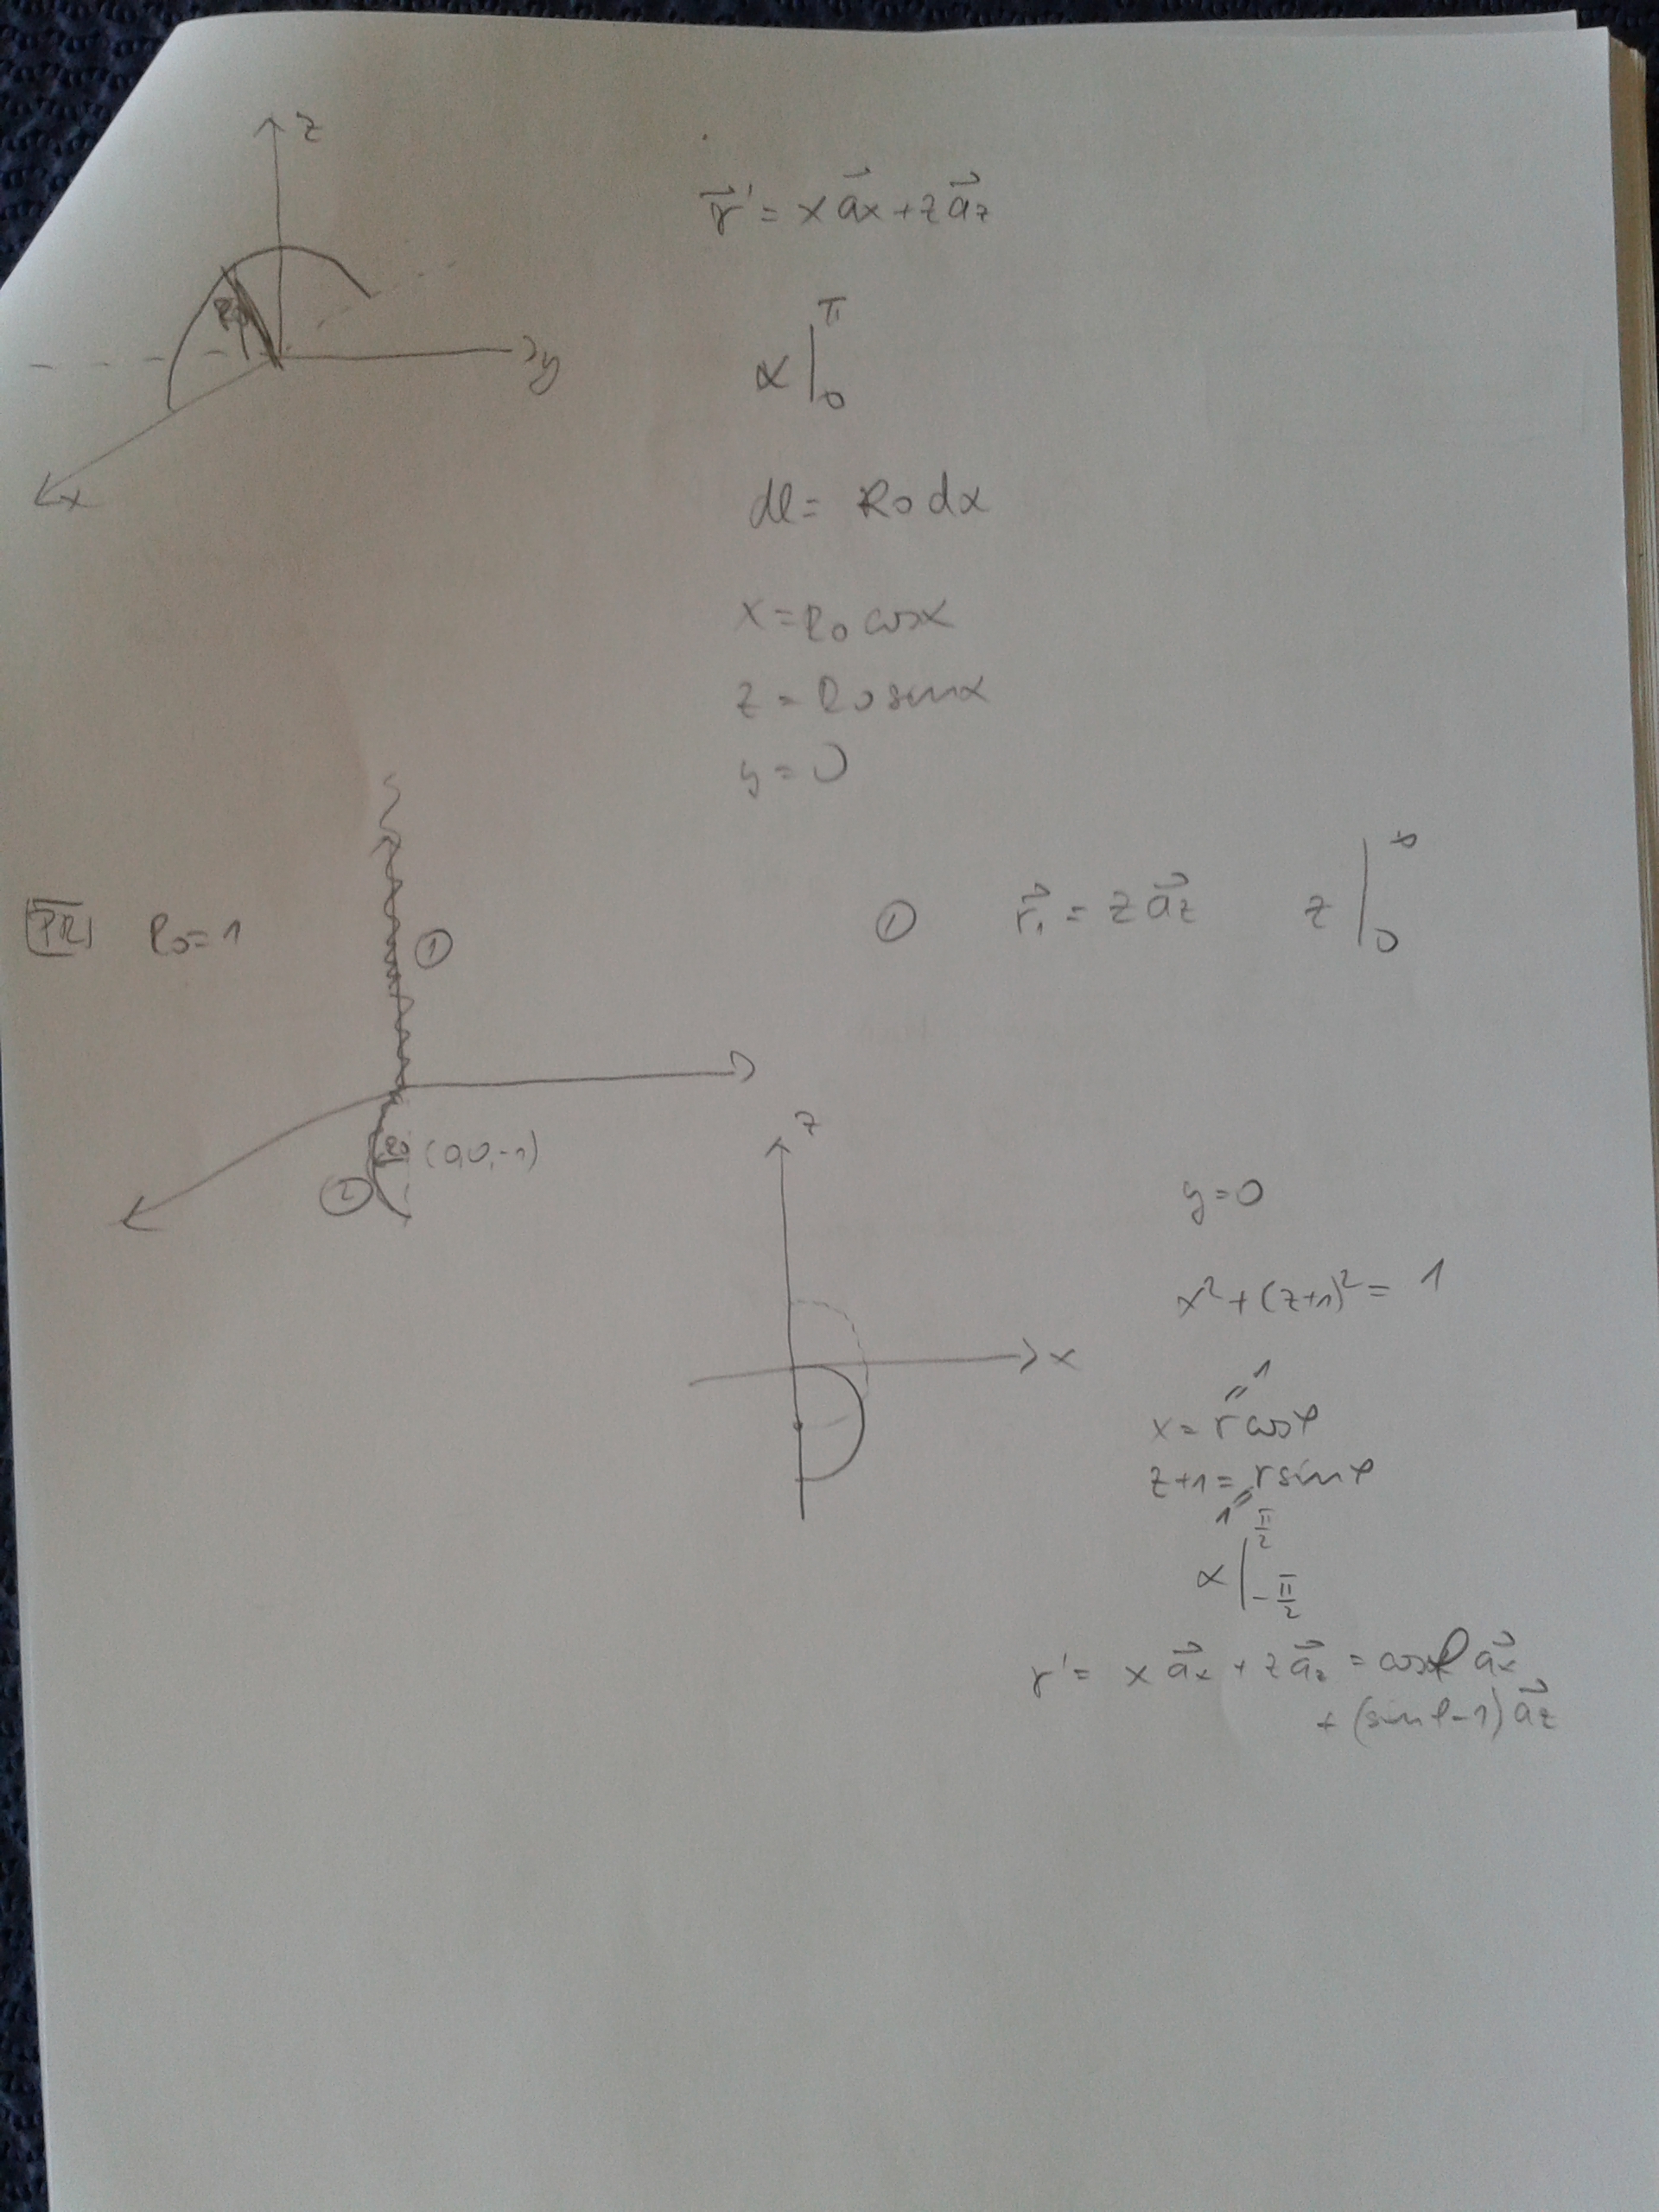 z
r⃗' = x a⃗x + z a⃗z
R0
y
x
α |₀^π
dl = R0 dα
x = R0 cosα
z = R0 sinα
y = 0
PR R0 = 1
①
① r⃗₁ = z a⃗z z |₀^∞
R0 (0,0,-1)
②
z
x
y = 0
x² + (z+1)² = 1
1
x = r cosφ
z+1 = r sinφ
1
α |_{-π/2}^{π/2}
r' = x a⃗x + z a⃗z = cosφ a⃗x
+ (sinφ-1) a⃗z